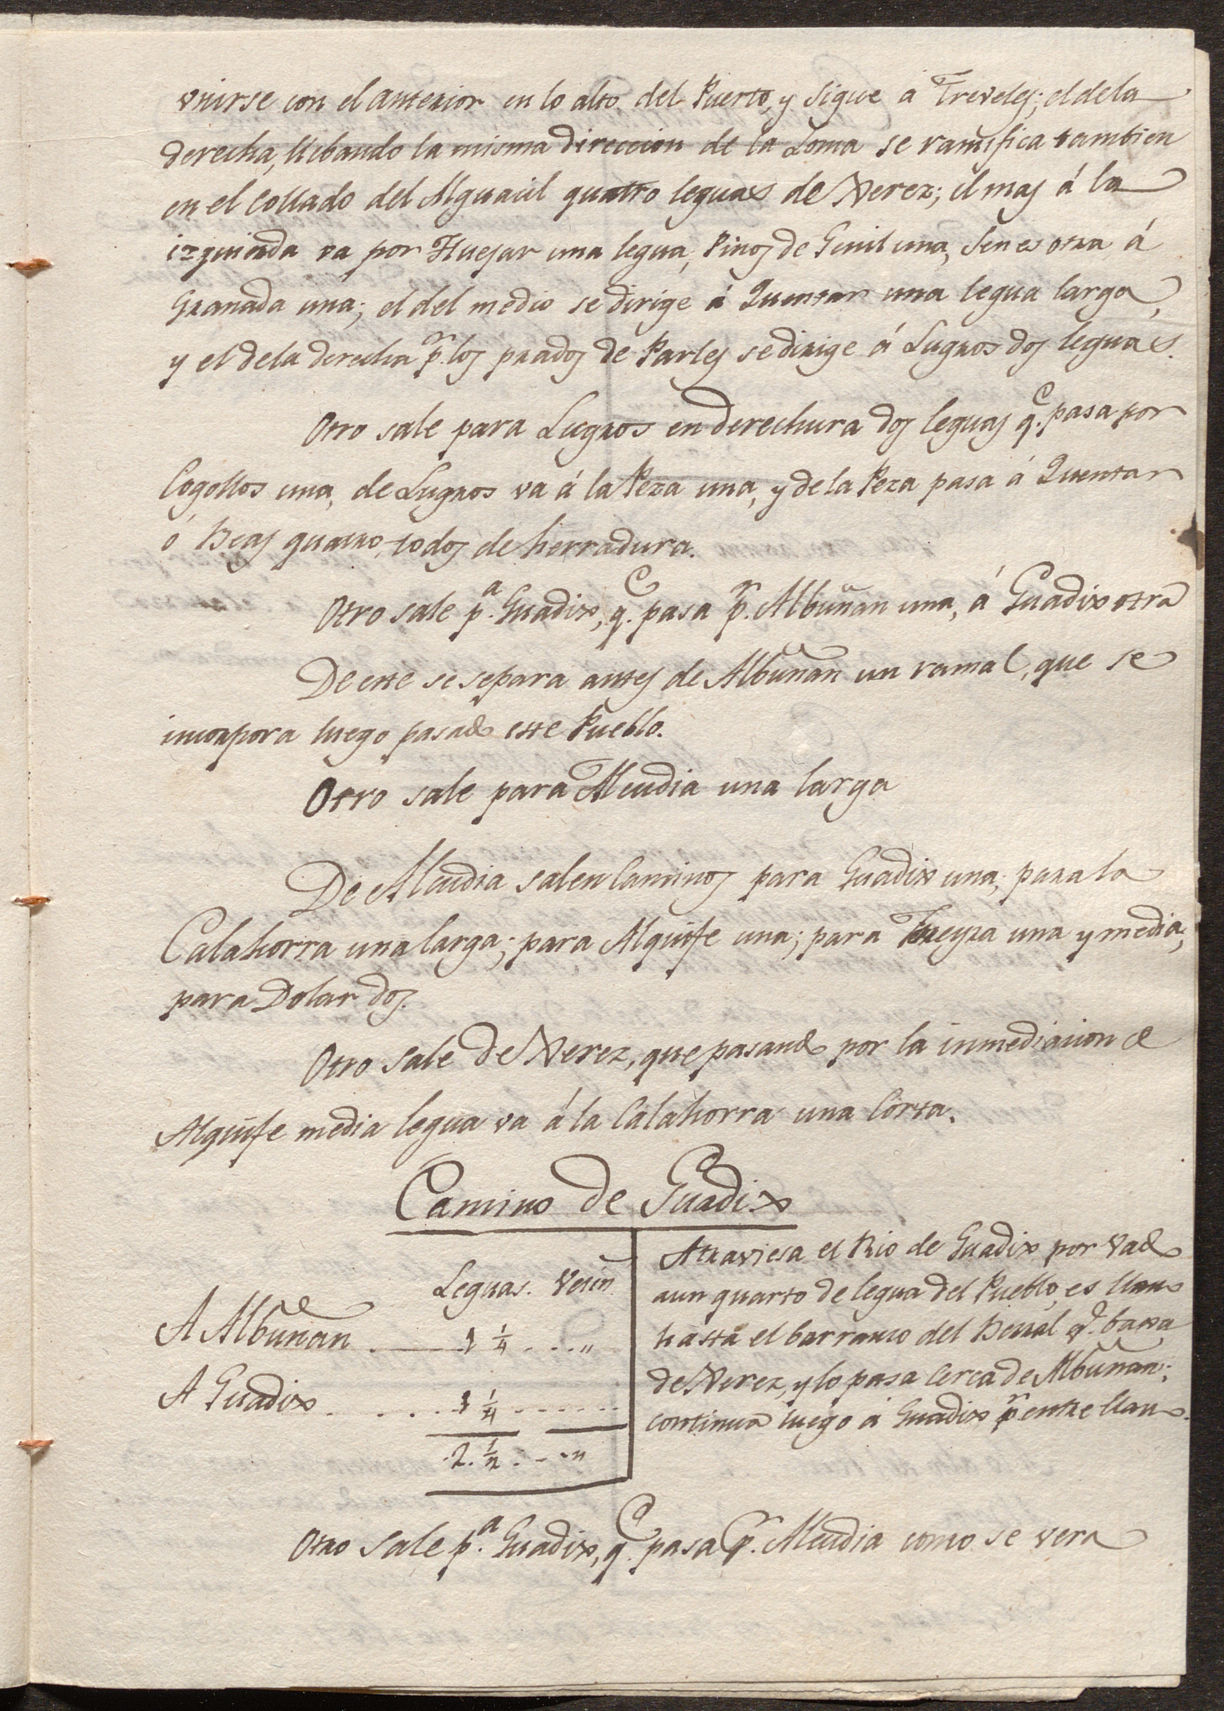 vnirse con el anterior en lo alto del Puerto, y sigue a Treveles; el de la
derecha, llebando la misma direccion de la Loma se ramifica tambien
en el Collado del Alguacil quatro leguas de Xerez; il mas á la
izquierda va por Huejar una legua, Pinos de Genil una, Senes otra á
Granada una; el del medio se dirige á Quentar una legua larga,
y el de la derecha p.r los prados de Parles se dirige á Lugros dos leguas.
Otro sale para Lugros en derechura dos leguas q.e pasa por
Cogollos una, de Lugros va á la Peza una, y de la Peza pasa á Quentar
ó Beas quatro, todos de herradura.
Otro sale p.a Guadix, q.e pasa p.r Albuñan una, á Guadix otra
De este se separa antes de Albuñan un ramal, que se
incorpora luego pasado este Pueblo.
Otro sale para Alcudia una larga
De Alcudia salen Caminos para Guadix una, para la
Calahorra una larga; para Alquife una; para Fereyra una y media;
para Dolar dos.
Otro sale de Xerez, que pasando por la inmediacion de
Alquife media legua va á la Calahorra una Corta.
Camino de Guadix
Leguas. Vecin
A Albuñan 1 1/4 .... "
A Guadix 1 1/4 ......
2. 1/2 . .. "
Atraviesa el Rio de Guadix por vado
a un quarto de legua del Pueblo, es llano
hasta el barranco del Berral q.e baxa
de Xerez, y lo pasa cerca de Albuñan;
continua luego á Guadix p.r entre llano.
Otro sale p.a Guadix, q.e pasa p.r Alcudia como se vera